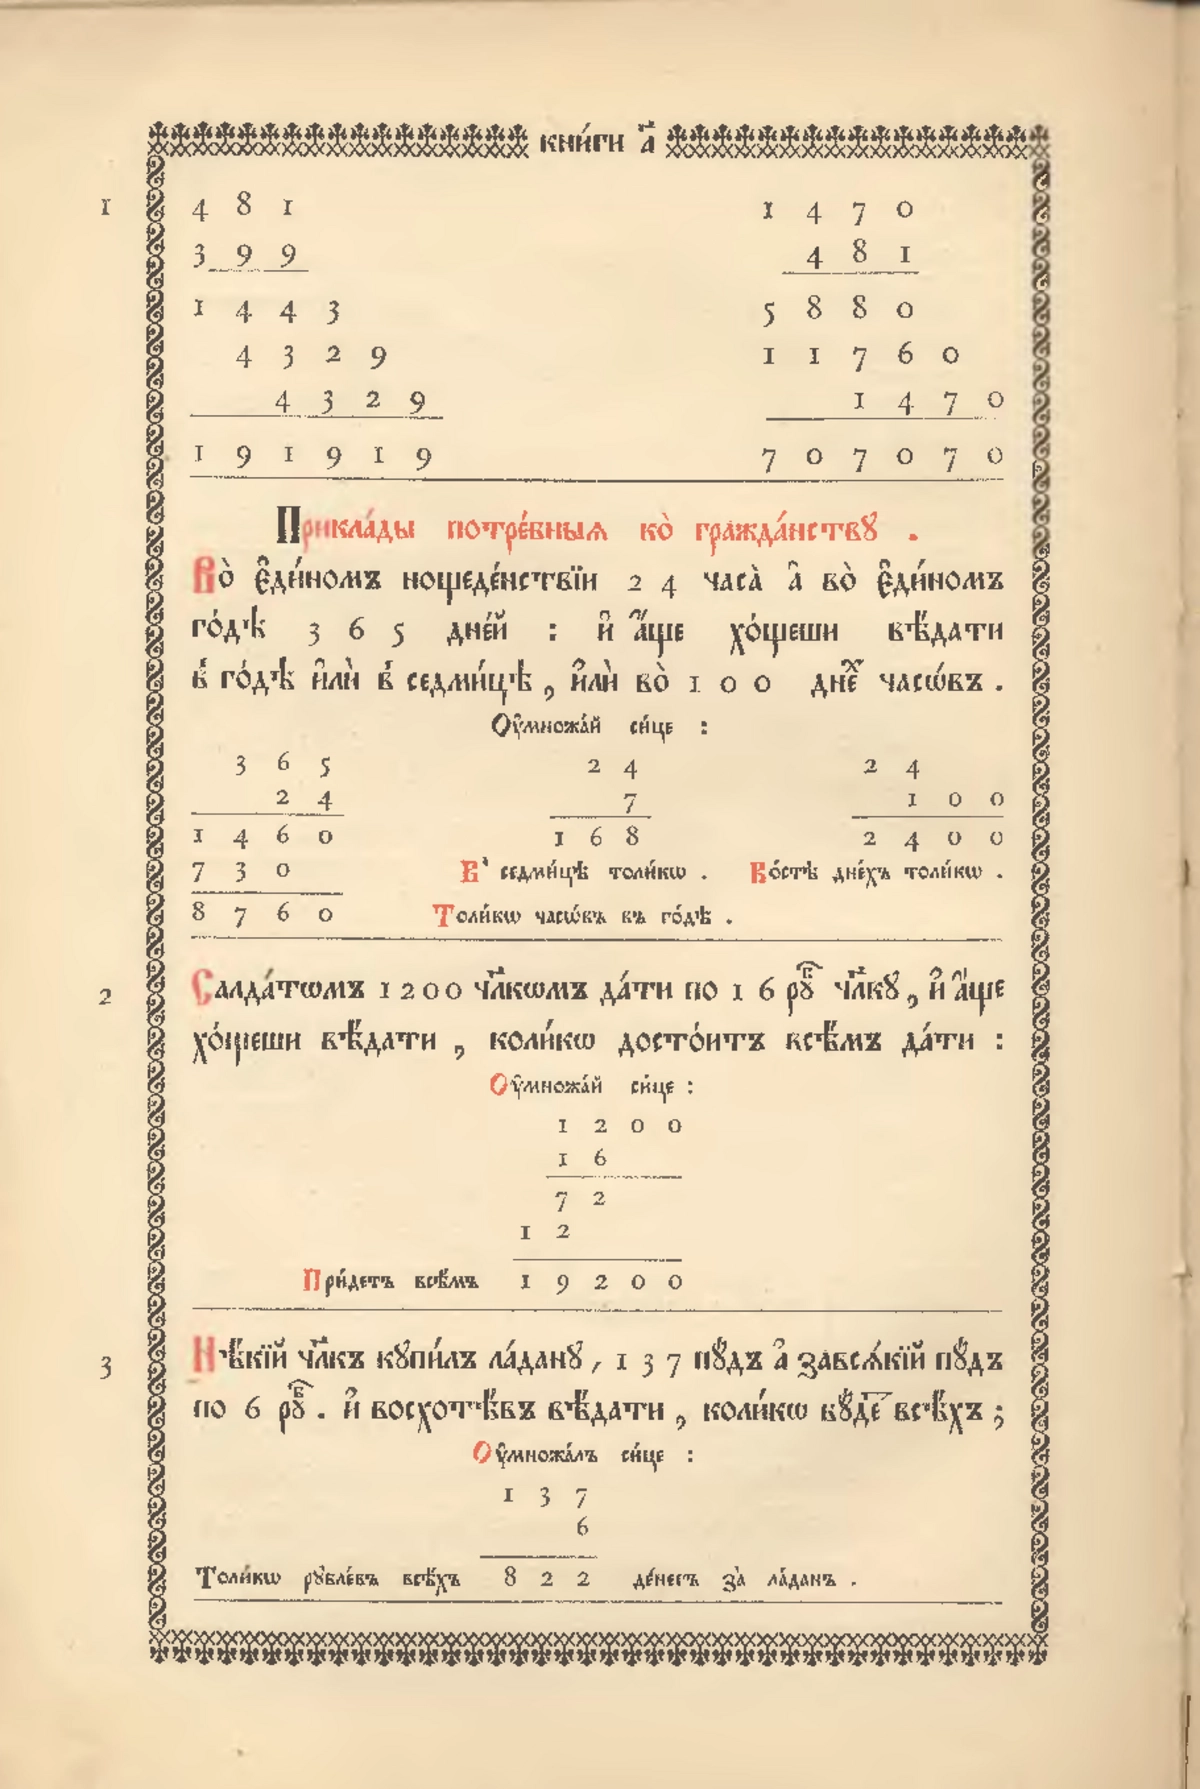 кни́ги а҃
1 4 8 1 1 4 7 0
3 9 9 4 8 1
1 4 4 3 5 8 8 0
4 3 2 9 1 1 7 6 0
4 3 2 9 1 4 7 0
1 9 1 9 1 9 7 0 7 0 7 0
Прикла́ды потре́бныѧ ко̀ гражда́нствꙋ .
Во̀ є҆ди́номъ нощеде́нствїи 2 4 часа̀ а҆ во̀ є҆ди́номъ
го́дѣ 3 6 5 дне́й : и҆ а҆́ще хо́щеши вѣ́дати
в̾ го́дѣ и҆лѝ в̾ седми́цѣ , и҆лѝ во̀ 1 0 0 днеⷯ часѡ́въ .
Оу҆множа́й си́це :
3 6 5 2 4 2 4
2 4 7 1 0 0
1 4 6 0 1 6 8 2 4 0 0
7 3 0 В̾ седми́цѣ толи́кѡ . Во́стѣ дне́хъ толи́кѡ .
8 7 6 0 Толи́кѡ часѡ́въ въ го́дѣ .
2 Салда́тѡмъ 1 2 0 0 чл҃кѡмъ да́ти по 1 6 рꙋⷠ҇ чл҃кꙋ , и҆ а҆́ще
хо́щеши вѣ́дати , коли́кѡ досто́итъ всѣ̑мъ да́ти :
Оу҆множа́й си́це :
1 2 0 0
1 6
7 2
1 2
Прі́детъ всѣ̑мъ 1 9 2 0 0
3 Нѣ́кїй чл҃къ кꙋпи́лъ ла́данꙋ , 1 3 7 пꙋ́дъ а҆ завсѧ́кїй пꙋ́дъ
по 6 рꙋⷠ҇ . и҆ восхотѣ́въ вѣ́дати , коли́кѡ бꙋ́де всѣ́хъ ;
Оу҆множа́лъ си́це :
1 3 7
6
Толи́кѡ рꙋбле́въ всѣ́хъ 8 2 2 де́несъ за̀ ла́данъ .